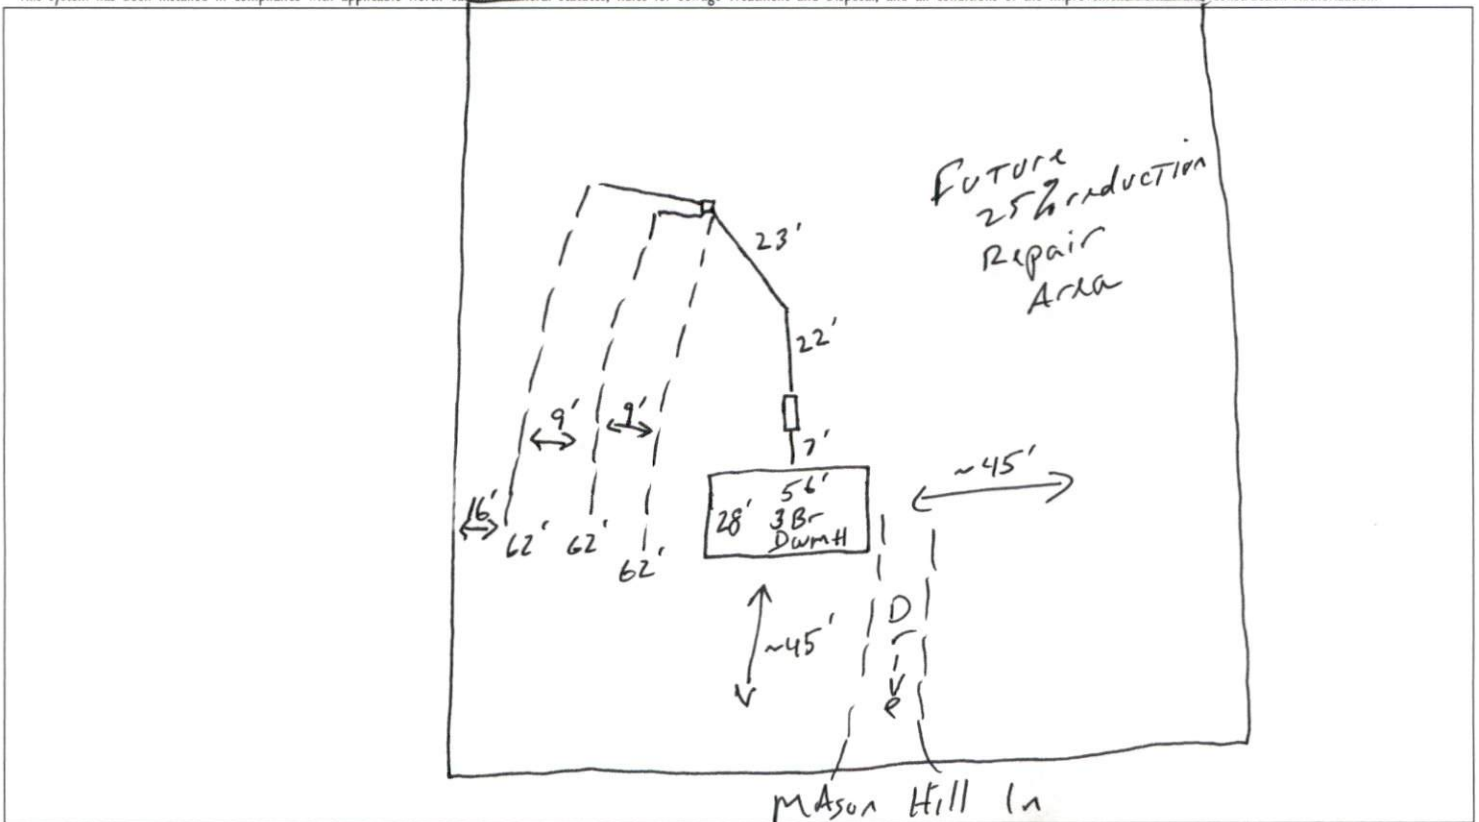 Future
25% reduction
Repair
Area
23'
22'
9'
9'
7'
~45'
16'
56'
28' 3Br
DWMH
62' 62'
62'
~45'
Drive
Mason Hill ln